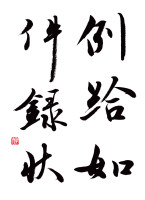 例給如
件録状